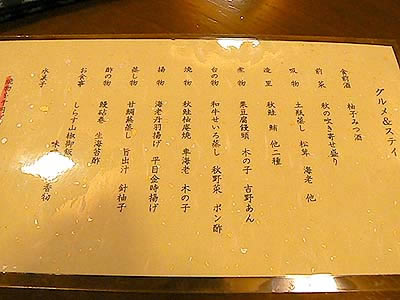 グルメ&スティ
食前酒 柚子みつ酒
前菜 秋の吹き寄せ盛り
吸物 土瓶蒸し 松茸 海老 他
造里 秋鮭 鮪 他二種
煮物 栗豆腐饅頭 木の子 吉野あん
台の物 和牛せいろ蒸し 秋野菜 ポン酢
焼物 秋鮭柚庵焼 車海老 木の子
揚物 海老丹羽揚げ 平目金時揚げ
蒸し物 甘鯛蕪蒸し 旨出汁 針柚子
酢の物 鰻砧巻 生海苔酢
お食事 しらす山椒御飯
味 香物
水菓子